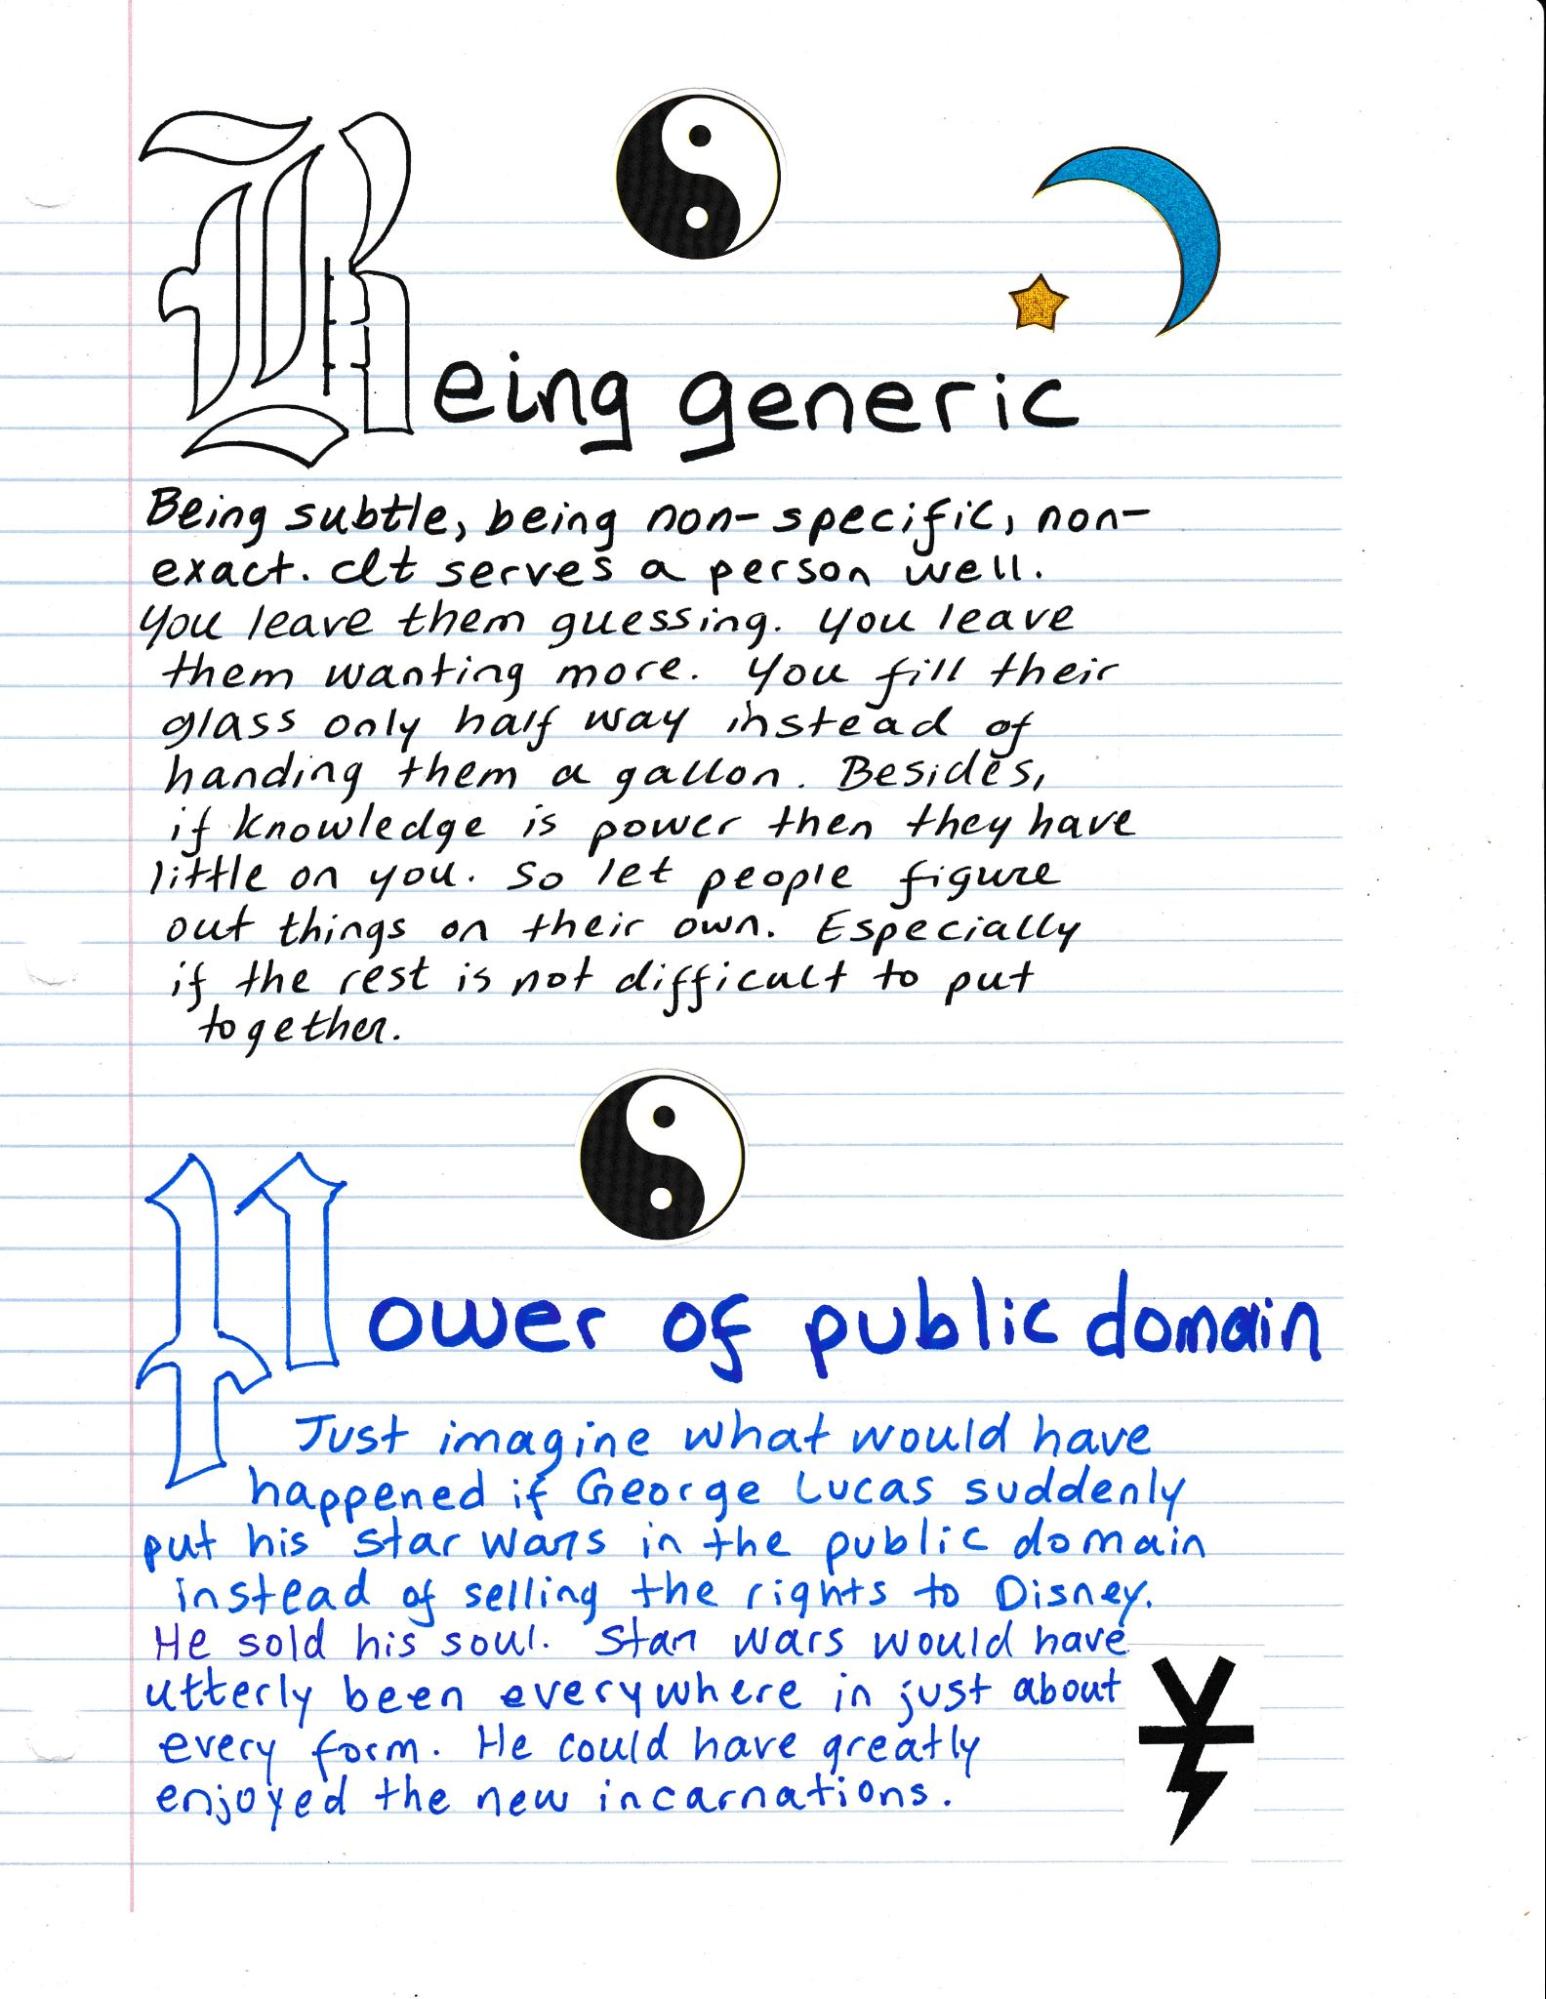 Being generic
Being subtle, being non-specific, non-
exact. It serves a person well.
You leave them guessing. You leave
them wanting more. You fill their
glass only half way instead of
handing them a gallon. Besides,
if knowledge is power then they have
little on you. So let people figure
out things on their own. Especially
if the rest is not difficult to put
together.
Power of public domain
Just imagine what would have
happened if George Lucas suddenly
put his Star Wars in the public domain
instead of selling the rights to Disney.
He sold his soul. Star Wars would have
utterly been everywhere in just about
every form. He could have greatly
enjoyed the new incarnations.